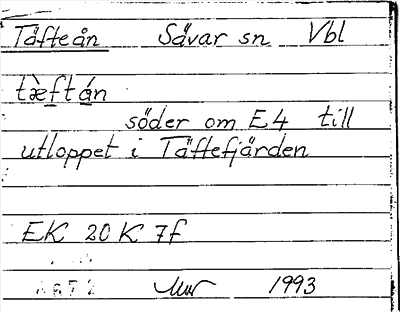 Täfteån Sävar sn Vbl
tæ̀ftá̱n
söder om E4 till
utloppet i Täftefjärden
EK 20 K 7f
1993